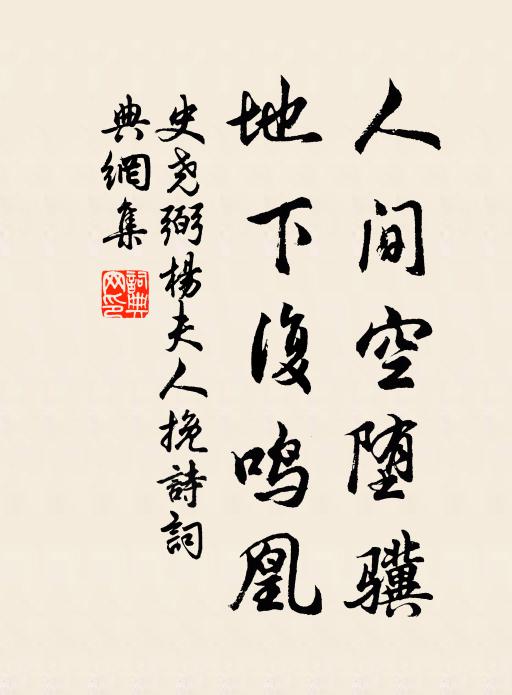 人间空堕骥
地下復鸣凰
史尧弼楊夫人挽詩詞
典網集
詞典网印